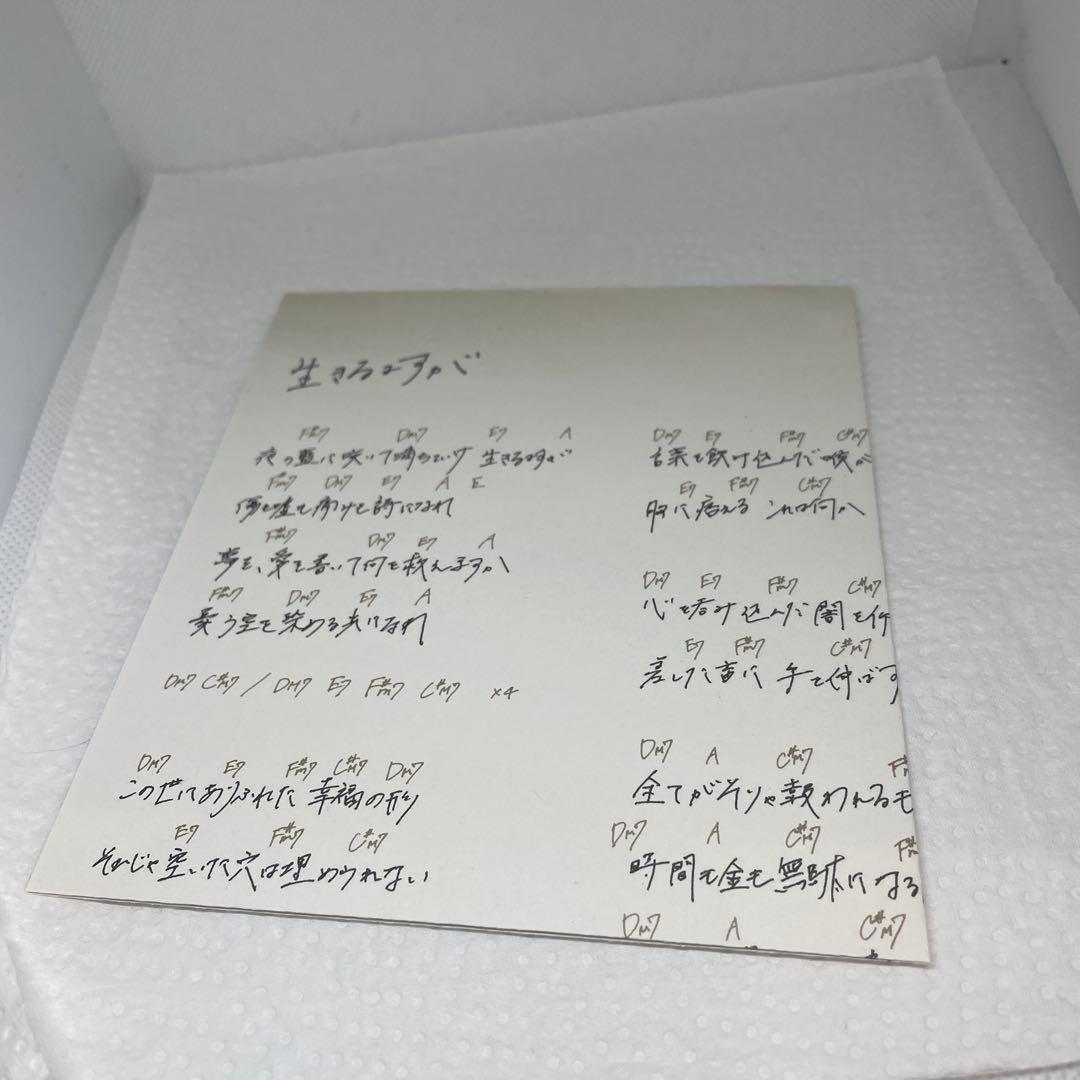 生きるよすが
F#m7 DM7 E7 A
夜の藍に咲いて 生きるよすが
F#m7 DM7 E7 A E
傷を嘘を開けて詩になれ
F#m7 DM7 E7 A
夢を、愛を着いて何を救えますか
F#m7 DM7 E7 A
舞う空を染める光になれ
DM7 C#m7 / DM7 E7 F#m7 C#m7 ×4
DM7 E7 F#m7 C#m7 DM7
この世にあふれた 幸福の形
E7 F#m7 C#m7
それじゃ空いた穴は埋められない
DM7 E7 F#m7 C#m7
言葉を飲み込んだ喉が
E7 F#m7 C#m7
胸に痞える これは何か
DM7 E7 F#m7 C#m7
心を呑み込んだ 闇を
E7 F#m7 C#m7
差した音に 手を伸ばす
DM7 A C#m7
全てがそりゃ報われるも
DM7 A C#m7
時間も金も無駄になる
DM7 A C#m7